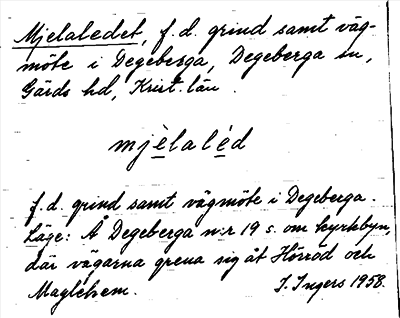 Mjelaledet, f.d. grind samt väg-
möte i Degeberga, Degeberga sn,
Gärds hd, Krist. län.
mjèlaléd
f.d. grind samt vägmöte i Degeberga.
Läge: Å Degeberga n:r 19 s. om kyrkbyn,
där vägarna grena sig åt Hörröd och
Maglehem. I. Ingers 1958.